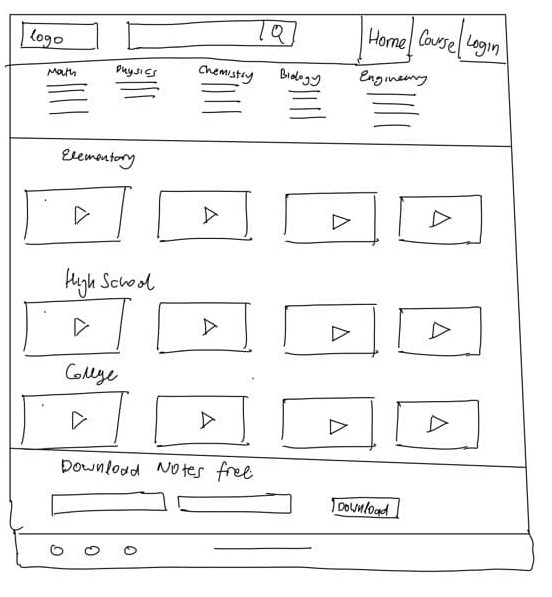 logo Home Course Login
Math Physics Chemistry Biology Engineering
Elementary
High School
College
Download Notes free
Download